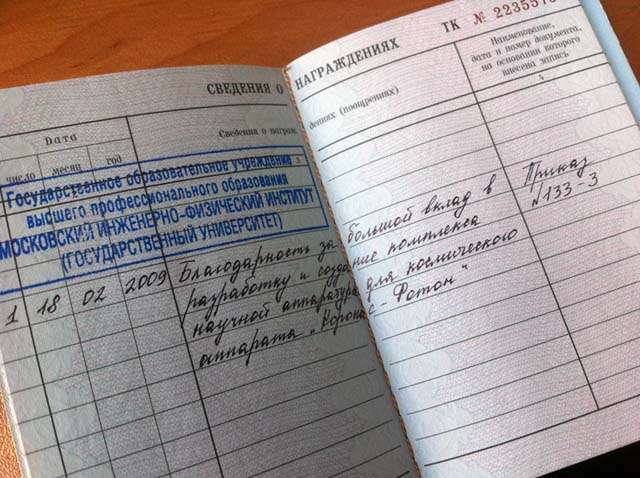 СВЕДЕНИЯ О НАГРАЖДЕНИЯХ
ТК № 22355
Дата
Сведения о награждениях (поощрениях)
Наименование, дата и номер документа, на основании которого внесена запись
число месяц год
3
4
Государственное образовательное учреждение
высшего профессионального образования
МОСКОВСКИЙ ИНЖЕНЕРНО-ФИЗИЧЕСКИЙ ИНСТИТУТ
(ГОСУДАРСТВЕННЫЙ УНИВЕРСИТЕТ)
1 18 02 2009 Благодарность за большой вклад в Приказ
разработку и создание комплекса №133-3
научной аппаратуры для космического
аппарата „Коронас-Фотон"